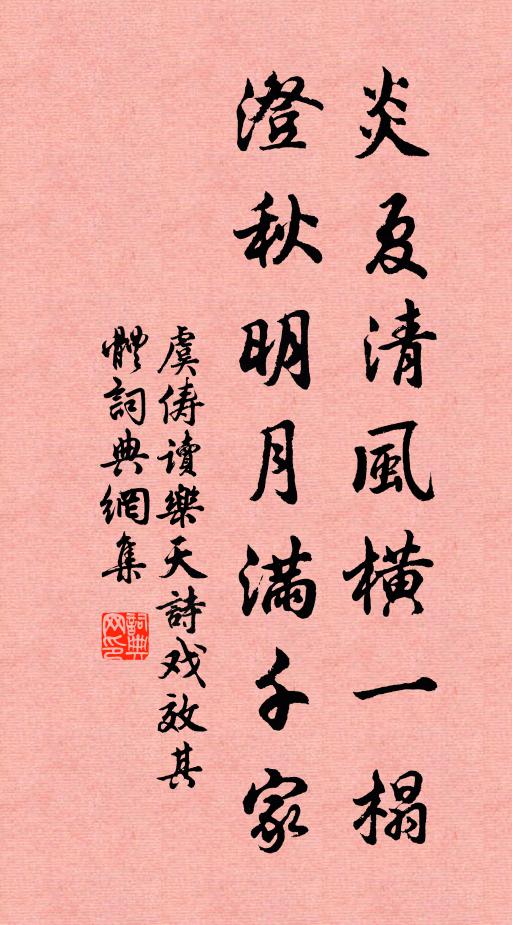 炎夏清風橫一榻
澄秋明月滿千家
虞儔讀樂天詩戏效其
體詞典網集
詞典
网印